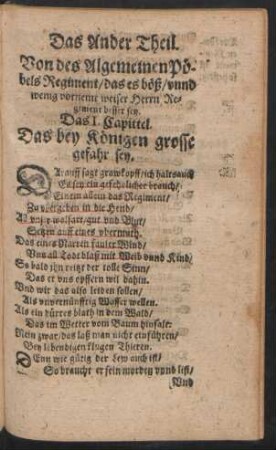 Das Ander Theil.
Von des Algemeinen Pö-
bels Regiment/das es böß/vnnd
wenig vorneme weiser Herrn Re-
giment besser sey.
Das I. Capittel.
Das bey Königen grosse
gefahr sey.
sagt grawkopff/ich halt auch
Es sey ein gefehrlicher brauch/
Einem allein das Regiment/
Zu vbergeben in die Hend/
All vnser wolfart/gut vnd Blut/
Setzen auff eines vbermuth.
Das eines Narren fauler Wind/
Vnd wir das also leiden sollen/
Als vnvernünfftig Wasser wellen.
Als ein dürres blath in dem Wald/
Das im Wetter vom Baum hinfalt:
Nein zwar/das laß man nicht einführen/
Bey lebendigen klugen Thieren.
DEnn wie gütig der Lew auch ist/
So braucht er sein mordig vnnd list/
Vnd